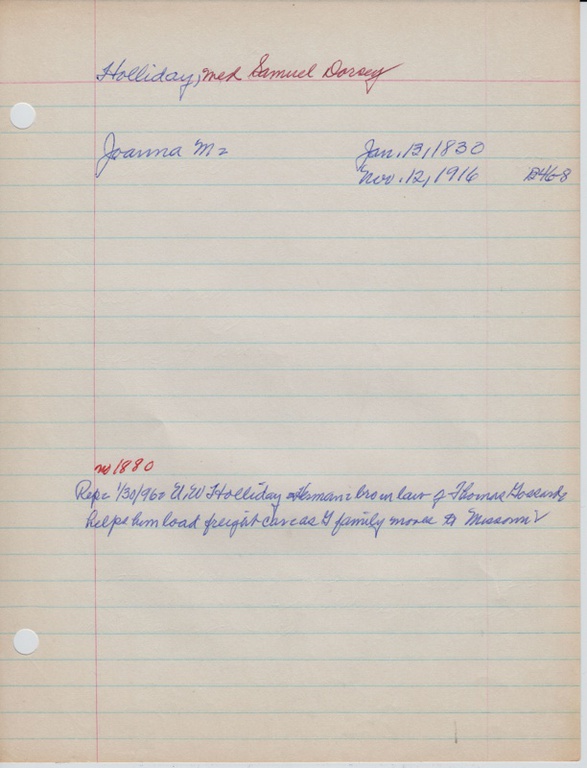 Holliday, wed Samuel Dorsey
Joanna M= Jan. 13, 1830
Nov. 12, 1916 B46-8
no 1880
Rep= 1/30/96= U.W Holliday = Herman= bro in law of Thomas
helps him load freight car as G family moves to Missouri